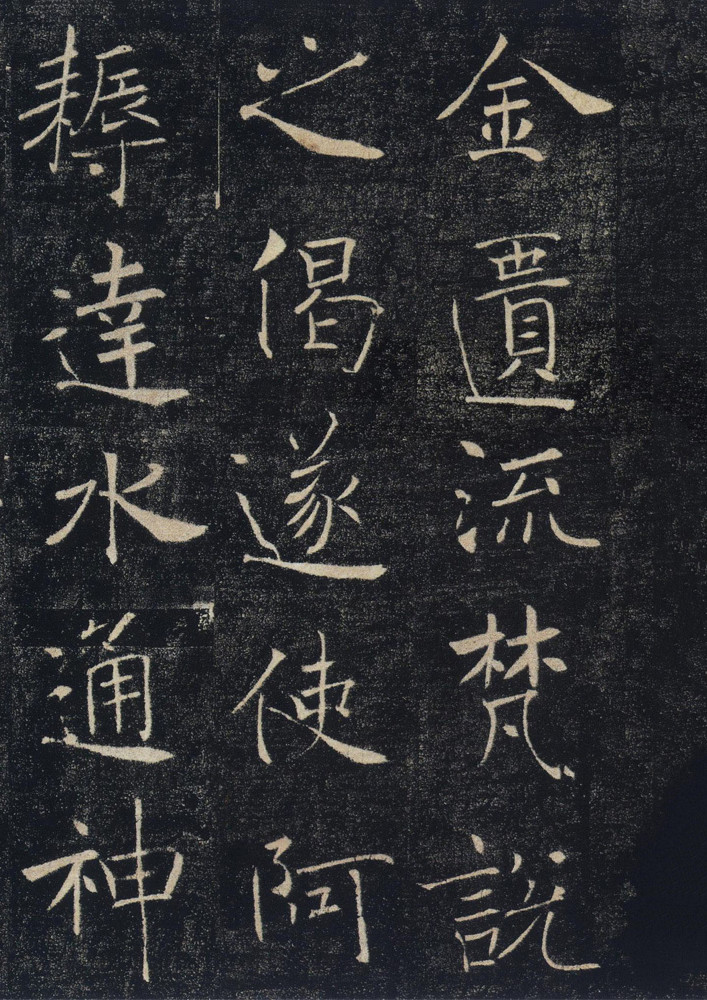 金匱流梵說
之偈遂使阿
耨達水通神